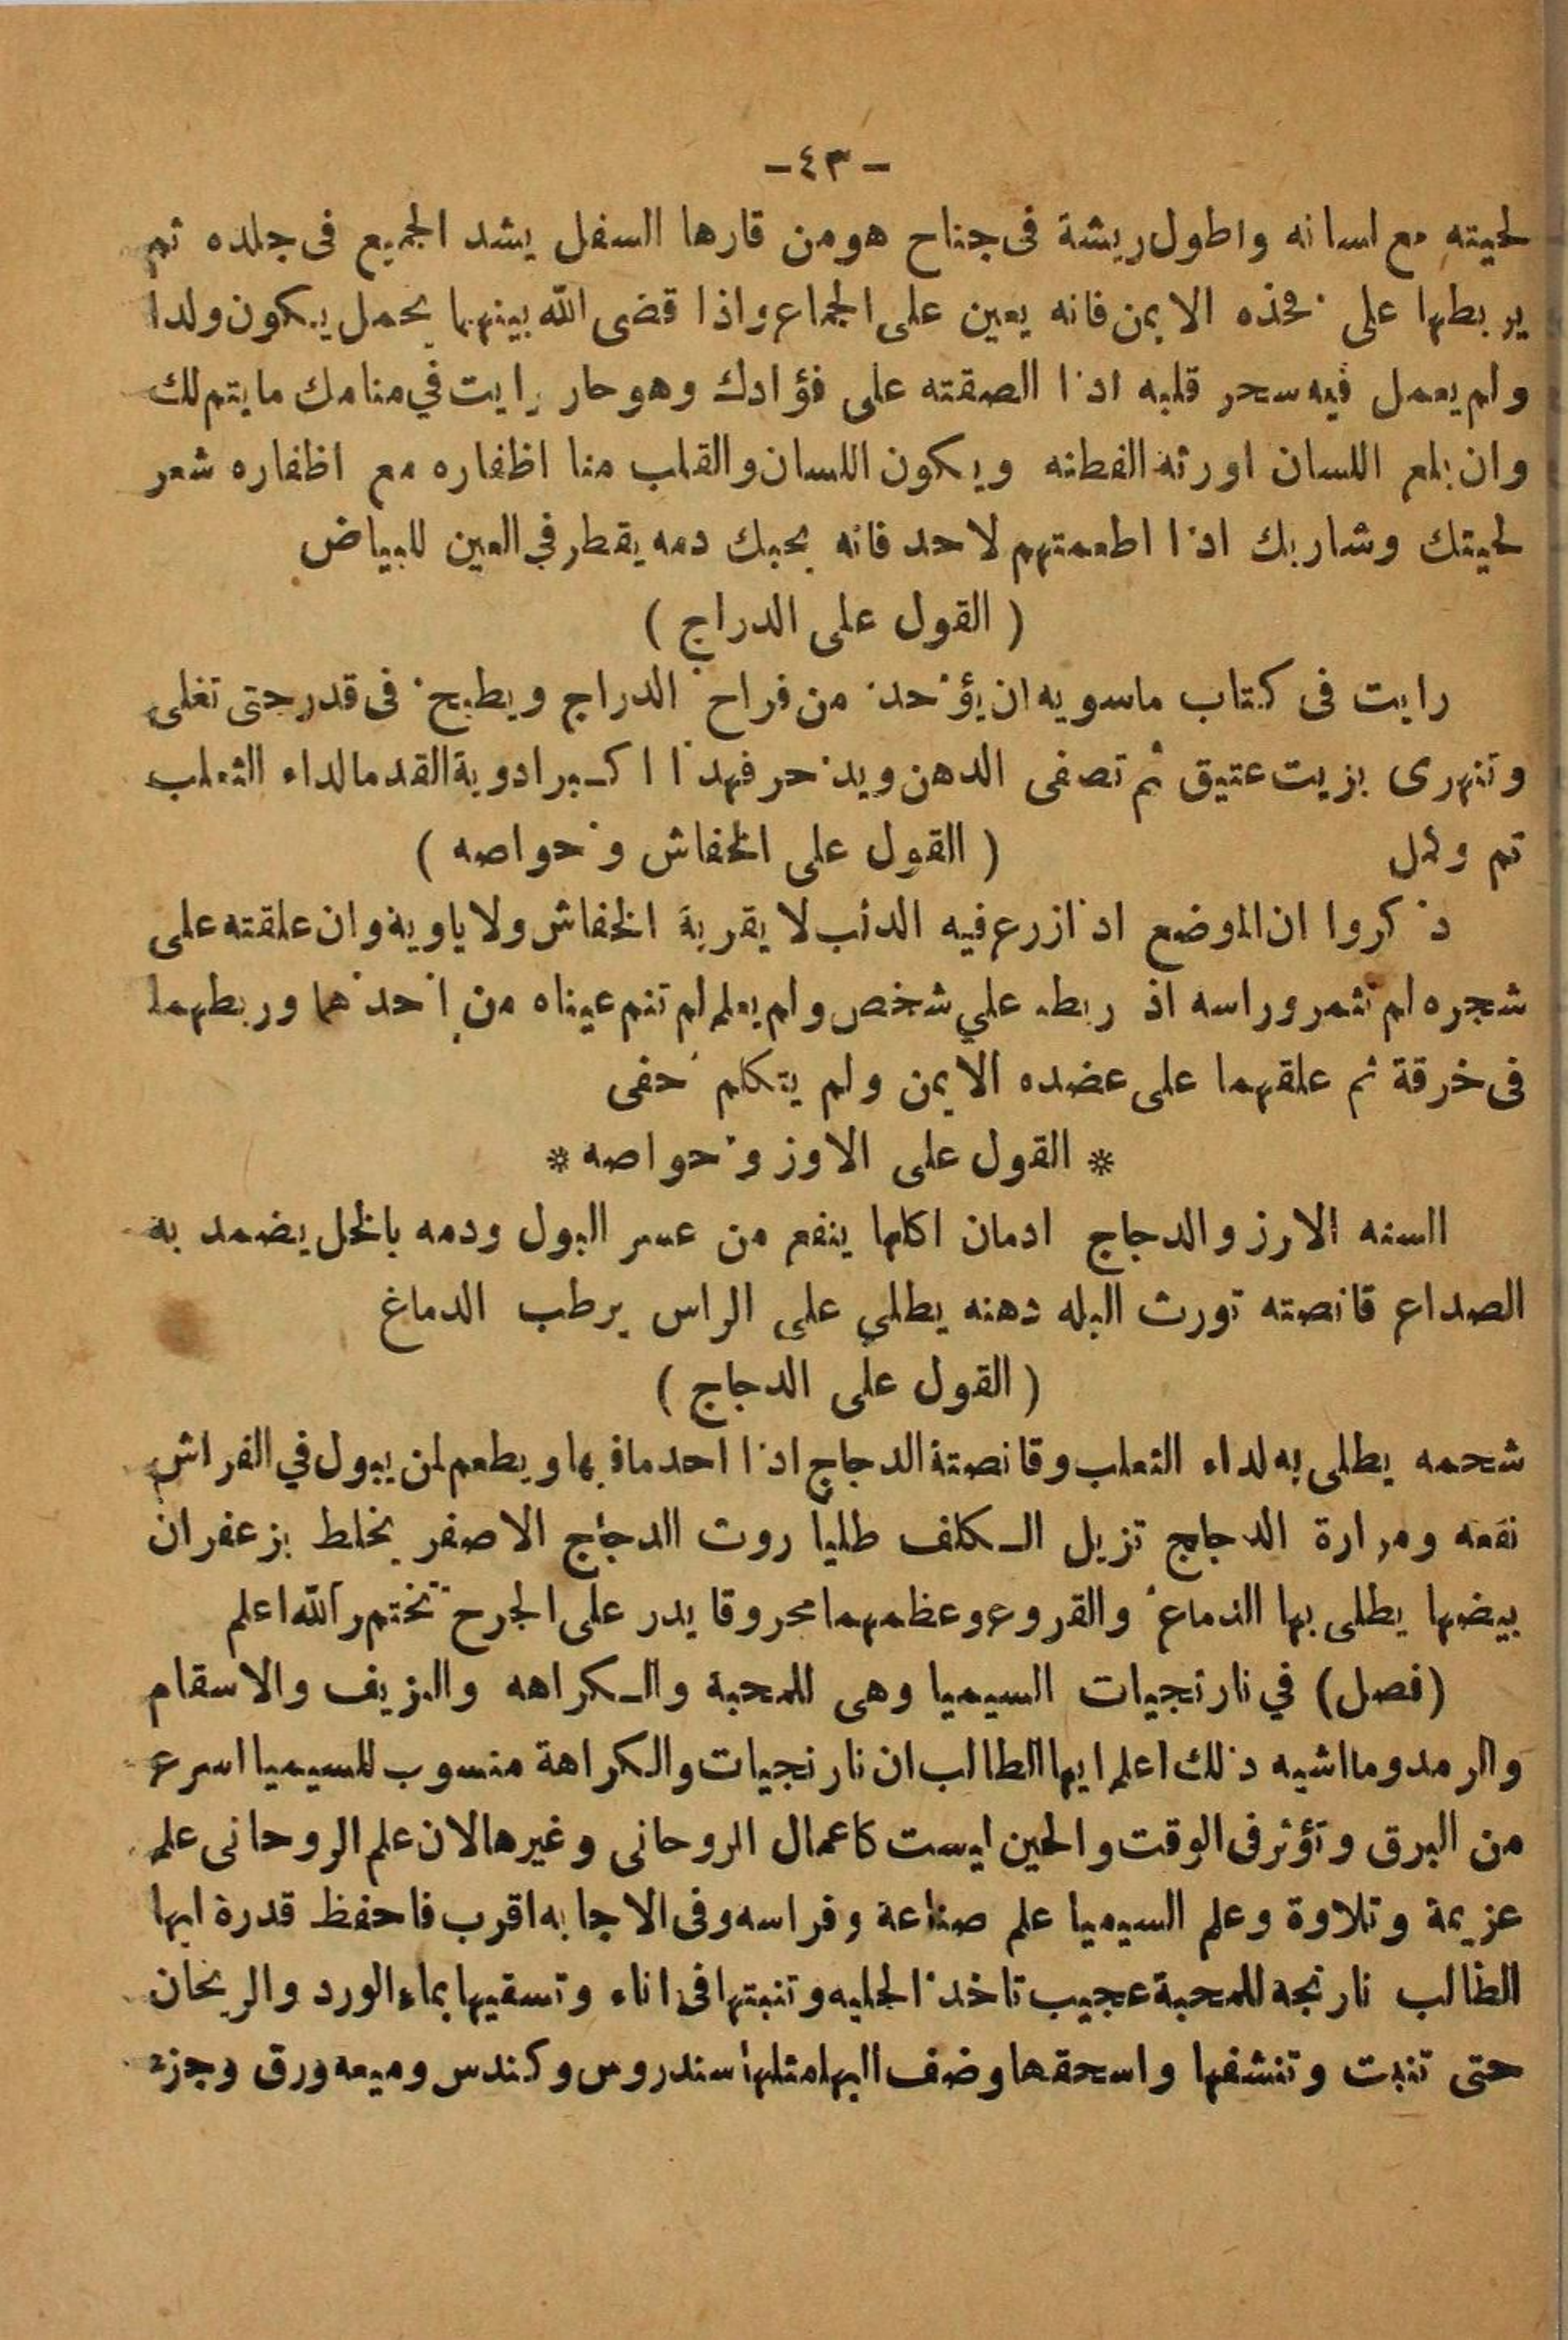 -٤٣-
لحيته مع لسانه واطول ريشة فى جناح هو من قارها السفل يشد الجميع فى جلده ثم
يربطها على فخذه الايمن فانه يعين على الجماع واذا قضى الله بينهما بحمل يكون ولدا
ولم يعمل فيه سحر قلبه اذا الصقته على فؤادك وهو حار رايت في منامك ما يتم لك
وان بلع اللسان اورثه الفطنه ويكون اللسان والقلب منا اظفاره مع اظفاره شعر
لحيتك وشاربك اذا اطعمتهم لاحد فانه يحبك دمه يقطر في العين للبياض
( القول على الدراج )
رايت فى كتاب ماسويه ان يؤخذ من فراخ الدراج ويطبخ فى قدر حتى تغلى
وتنهرى بزيت عتيق ثم تصفى الدهن ويدخر فهذا اكبر ادوية القدما لداء الثعلب
تم وكمل ( القول على الخفاش وخواصه )
ذكروا ان الموضع اذا زرع فيه الدئب لا يقربة الخفاش ولا ياوية وان علقته على
شجره لم تثمر وراسه اذ ربط علي شخص ولم يعلم لم تنم عيناه من اخذهما وربطهما
فى خرقة ثم علقهما على عضده الايمن ولم يتكلم خفى
* القول على الاوز وخواصه *
السنه الارز والدجاج ادمان اكلها ينفع من عسر البول ودمه بالخل يضمد به
الصداع قانصته تورث البله دهنه يطلي على الراس يرطب الدماغ
( القول على الدجاج )
شحمه يطلى به لداء الثعلب وقانصتة الدجاج اذا احد مافيها ويطعم لمن يبول في الفراش
نفعه ومرارة الدجاج تزيل الكلف طليا روث الدجاج الاصفر يخلط بزعفران
بيضها يطلى بها الدماغ والقروع وعظمهما محروقا يدر على الجرح تختم والله اعلم
(فصل) في نارنجيات السيميا وهى للمحبة والكراهه والنزيف والاسقام
والرمد وما اشبه ذلك اعلم ايها الطالب ان نارنجيات والكراهة منسوب للسيميا اسرع
من البرق وتؤثر فى الوقت والحين ليست كاعمال الروحانى وغيرها لان علم الروحانى علم
عزيمة وتلاوة وعلم السيميا علم صناعة وفراسه وفى الاجابه اقرب فاحفظ قدرة ايها
الطالب نارنجه للمحبة عجيب تاخذ الحلبه وتنبتها فى اناء وتسقيها بماء الورد والريحان
حتى تنبت وتنشفها واسحقها وضف اليها مثلها سندروس وكندس وميعه ورق وجزء